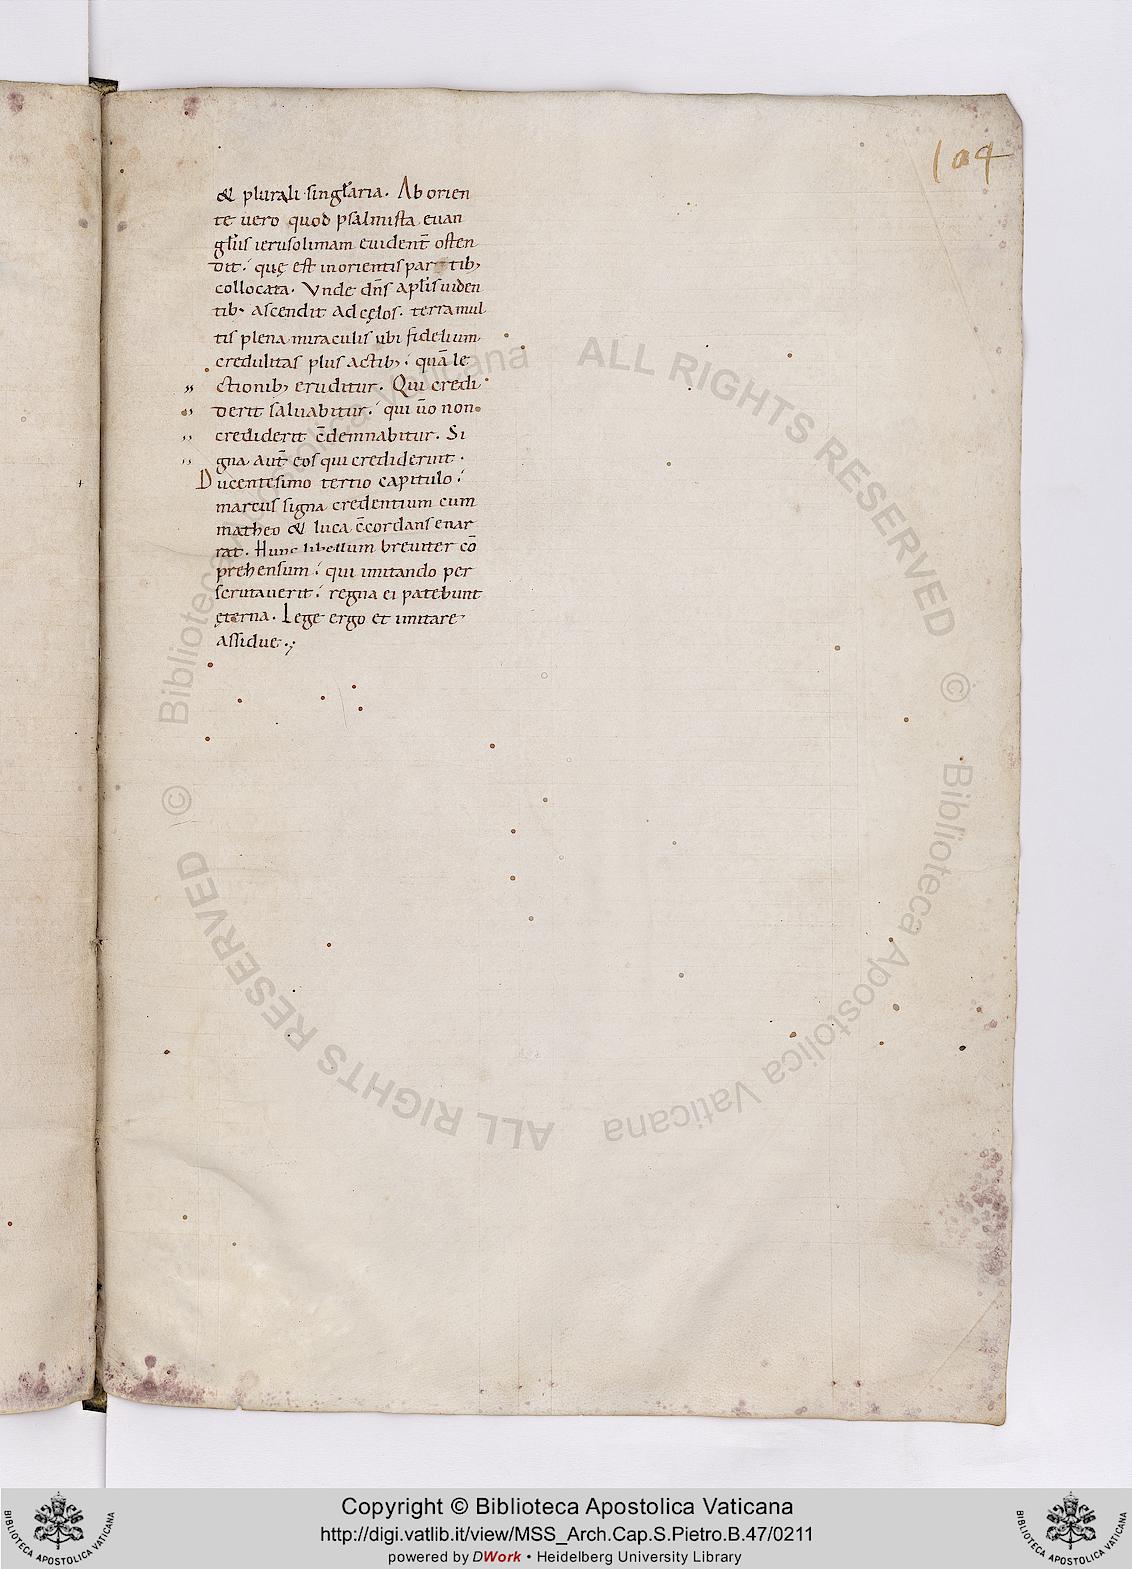 104
& plurali singl̄aria. Ab orien
te uero quod psalmista euan
gl̄iis ierusolimam euident̄ osten
dit. quę est in orientis partib;
collocata. Vnde dn̄s apl̄is uiden
tib; ascendit ad cęlos. terra mul
tis plena miraculis ubi fidelium
credulitas plus actib; quā le
ctionib; eruditur. Qui credi
derit saluabitur. qui ūo non
crediderit c̄demnabitur. Si
gna aut̄ eos qui crediderint.
Ducentesimo tertio capitulo
marcus signa credentium cum
matheo & luca c̄cordans enar
rat. Hunc libellum breuiter cō
prehensum qui imitando per
scrutauerit regna ei patebunt
ęterna. Lege ergo et imitare
assidue.
Biblioteca Apostolica Vaticana ALL RIGHTS RESERVED © Biblioteca Apostolica Vaticana ALL RIGHTS RESERVED ©
Copyright © Biblioteca Apostolica Vaticana
http://digi.vatlib.it/view/MSS_Arch.Cap.S.Pietro.B.47/0211
powered by DWork • Heidelberg University Library
BIBLIOTECA APOSTOLICA VATICANA
BIBLIOTECA APOSTOLICA VATICANA